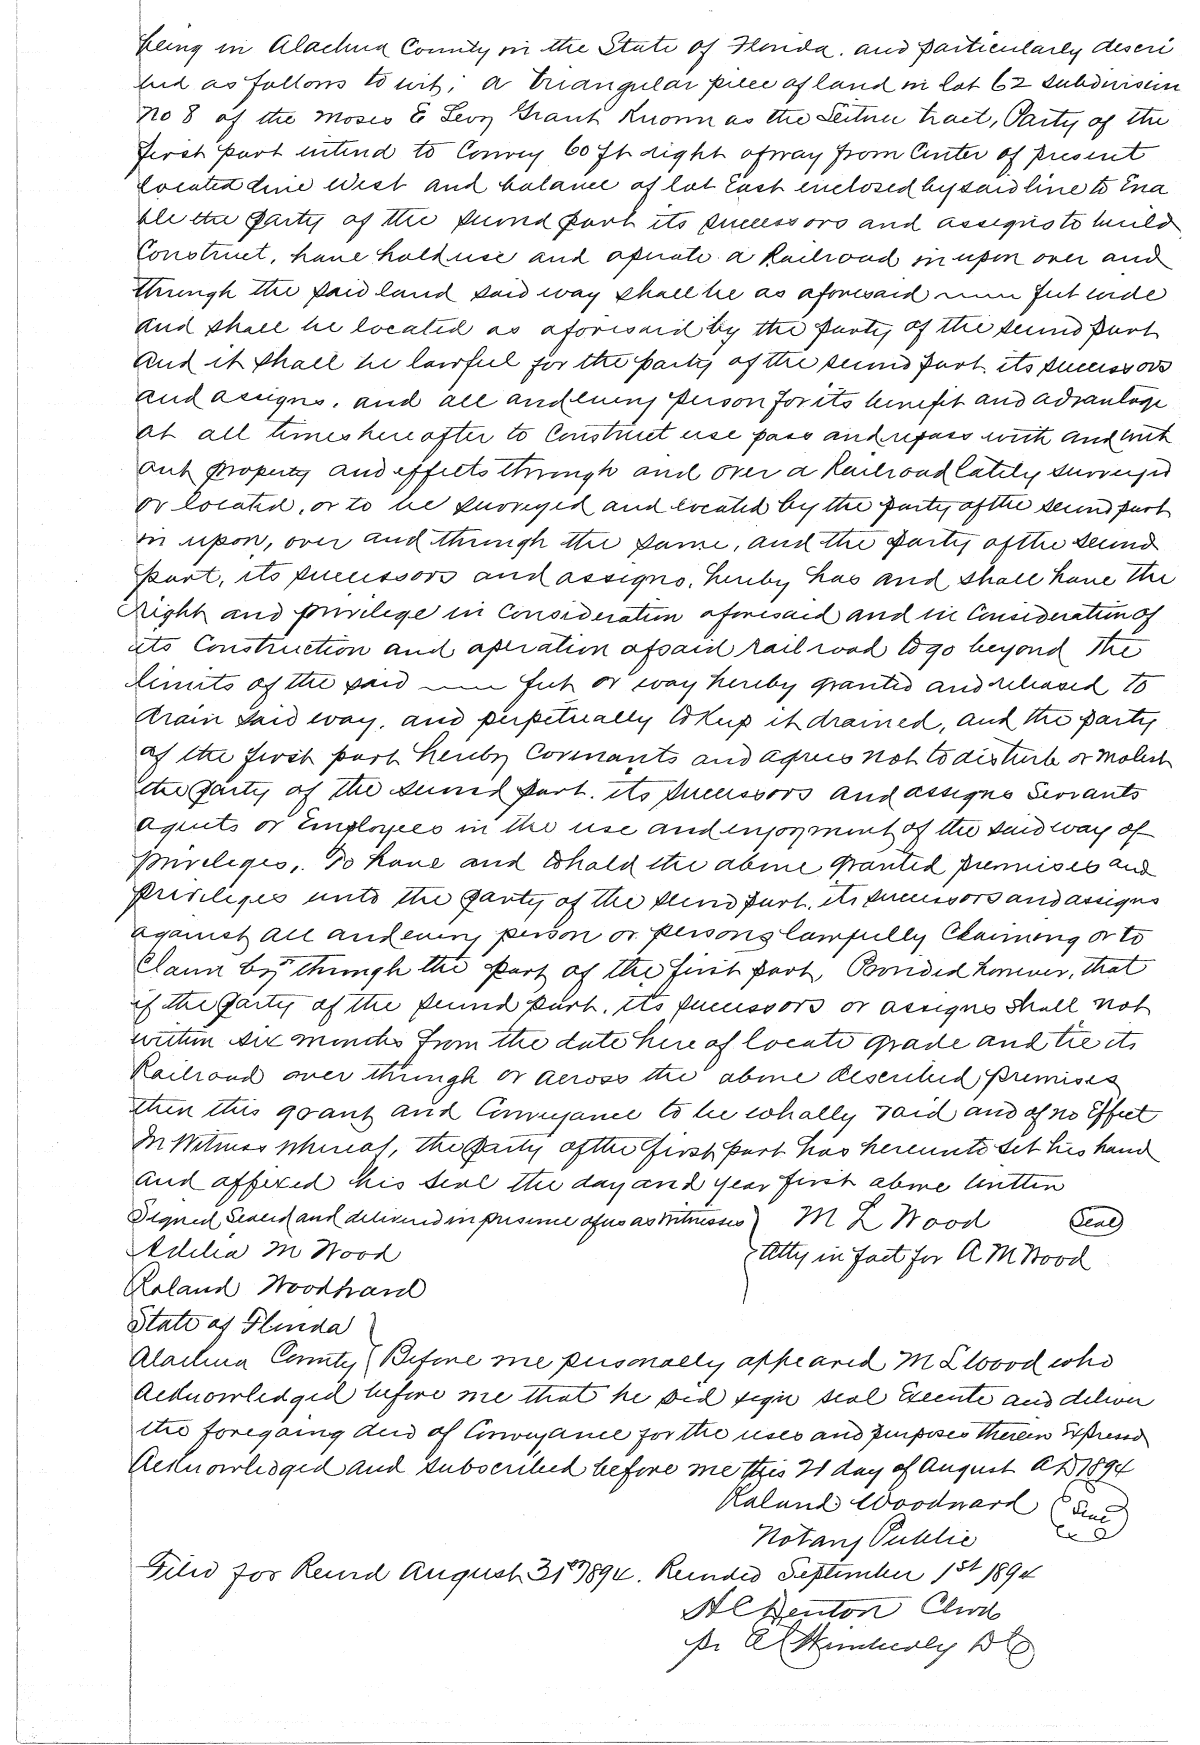 being in Alachua County in the State of Florida. and particularly descri
bed as follows to wit; a triangular piece of land in lot 62 subdivision
No 8 of the Moses E Levy Grant Known as the Seitner tract, Party of the
first part intend to Convey 60 ft right of way from Center of present
located line West and balance of lot East enclosed by said line to Ena
ble the party of the second part its successors and assigns to build
Construct, have hold use and operate a Railroad in upon over and
through the said land said way shall be as aforesaid feet wide
and shall be located as aforesaid by the party of the second part
And it shall be lawful for the party of the second part. its successors
and assigns. and all and every person for its benefit and advantage
at all times hereafter to Construct use pass and repass with and with
out property and effects through and over a Railroad lately surveyed
or located, or to be surveyed and located by the party of the second part
in upon, over and through the same, and the party of the second
part, its successors and assigns, hereby has and shall have the
right and privilege in Consideration aforesaid and in Consideration of
its Construction and operation of said railroad to go beyond the
limits of the said feet or way hereby granted and released to
drain said way, and perpetually to keep it drained, and the party
of the first part hereby Covenants and agrees not to disturb or molest
the party of the second part. its successors and assigns Servants
agents or Employees in the use and enjoyment of the said way of
privileges, To have and to hold the above granted premises and
privileges unto the party of the second part. its successors and assigns
against all and every person or persons lawfully Claiming or to
Claim by through the part of the first part, Provided however, that
if the party of the second part. its successors or assigns shall not
within six months from the date hereof locate grade and tie its
Railroad over through or across the above described premises
then this grant and Conveyance to be wholly void and of no Effect
In Witness whereof, the party of the first part has hereunto set his hand
and affixed his seal the day and year first above written
Signed Sealed and delivered in presence of us as Witnesses } M L Wood (Seal)
Adelia M Wood { Atty in fact for A M Wood
Roland Woodward
State of Florida }
Alachua County { Before me personally appeared M L Wood who
Acknowledged before me that he did sign seal Execute and deliver
the foregoing deed of Conveyance for the uses and purposes therein Expressed
Acknowledged and subscribed before me this 21 day of August AD 1894
Roland Woodward (Seal)
Notary Public
Filed for Record August 31st 1894. Recorded September 1st 1894
H C Denton Clerk
pr Wimberly D C